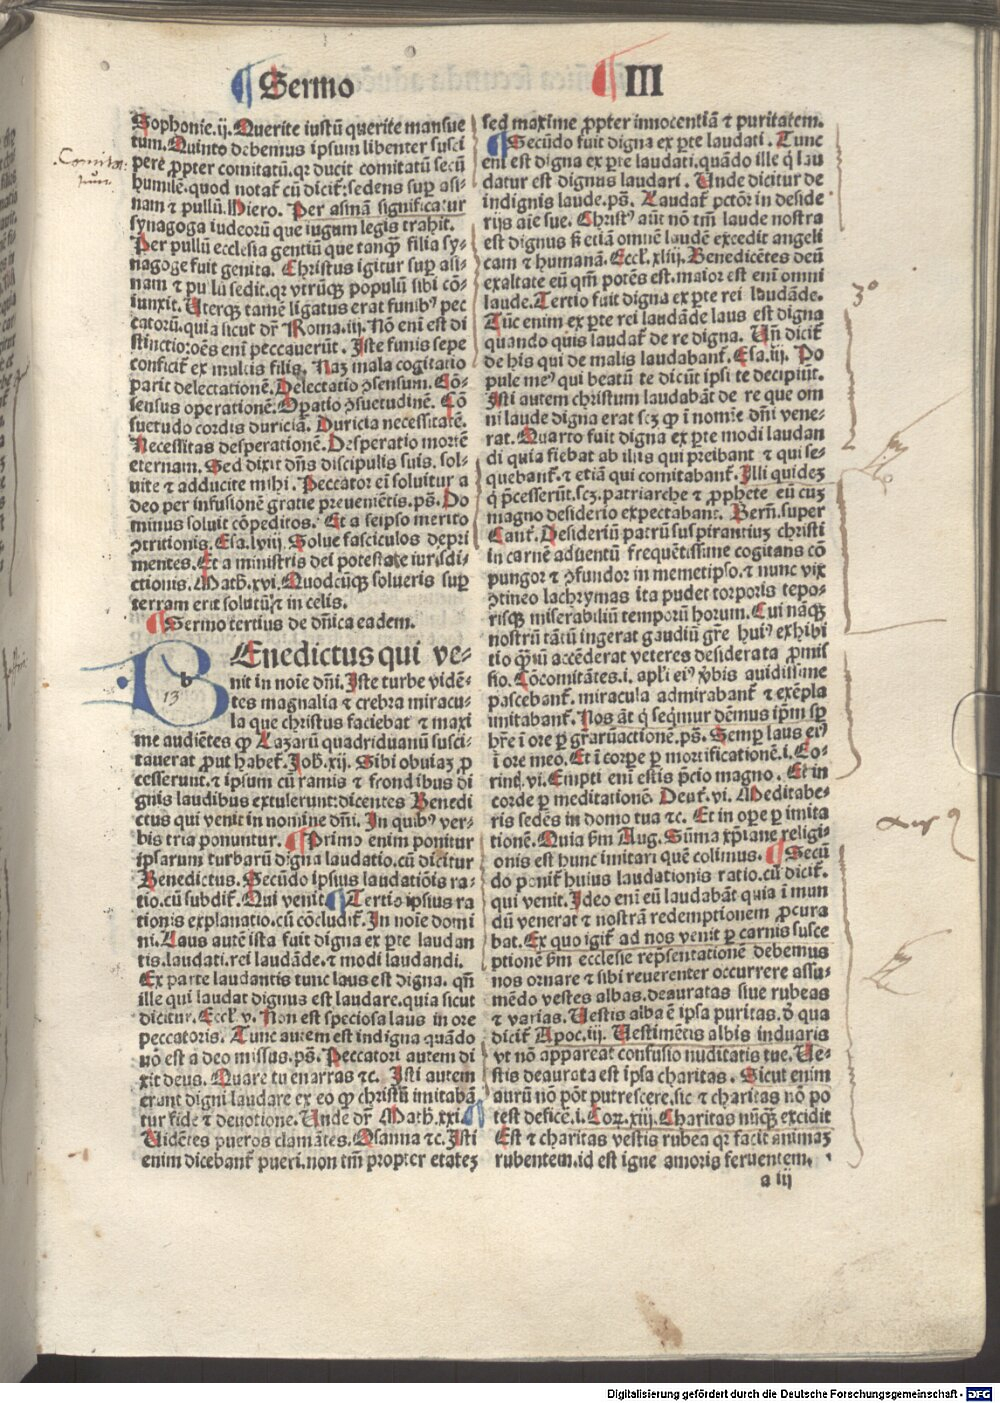 Sermo III
Sophonie.ij. Querite iustū querite mansue
tum. Quinto debemus ipsum libenter susci
pere ꝓpter comitatū. qꝛ ducit comitatū secū
humilē. quod notat̄ cū dicit̄: sedens suꝑ asi-
nam ⁊ pullū. Hiero. Per asinā significatur
synagoga iudeorū que iugum legis trahit.
Per pullū ecclesia gentiū que tanqꝫ filia sy-
nagoge fuit genita. Christus igitur suꝑ asi-
nam ⁊ pullū sedit. qꝛ vtrūqꝫ populū sibi cō-
iunxit. Uterqꝫ tamē ligatus erat funibꝰ pec
catorū. quia sicut dr̄ Roma.iij. Nō eni est di
stinctio: oēs eni peccauerūt. Iste funis sepe
conficit̄ ex multis filis. Naꝫ mala cogitatio
parit delectationē. Delectatio ꝯsensum. Cō-
sensus operationē. Oꝑatio ꝯsuetudinē. Cō
suetudo cordis duriciā. Duricia necessitatē.
Necessitas desperationē. Desperatio mortē
eternam. Sed dixit dn̄s discipulis suis. sol-
uite ⁊ adducite mihi. Peccator eni soluitur a
deo per infusionē gratie preuenientis. ps̄. Do
minus soluit cōpeditos. Et a seipso merito
ꝯtritionis. Esa.lviij. Solue fasciculos depri
mentes. Et a ministris dei potestate iurisdi-
ctionis. Math.xvi. Quodcūqꝫ solueris suꝑ
terram erit solutū ⁊ in celis.
¶ Sermo tertius de dn̄ica eadem.
BEnedictus qui ve-
nit in noīe dn̄i. Iste turbe vidē-
tes magnalia ⁊ crebra miracu-
la que christus faciebat ⁊ maxi
me audiētes ꝙ Lazarū quadriduanū susci-
tauerat ꝓut habet̄. Joh.xij. Sibi obuiaꝫ ꝓ
cesserunt. ⁊ ipsum cū ramis ⁊ frondibus di
gnis laudibus extulerunt: dicentes Benedi
ctus qui venit in nomine dn̄i. In quibꝰ ver-
bis tria ponuntur. ¶ Primo enim ponitur
ipsarum turbarū digna laudatio. cū dicitur
Benedictus. Secūdo ipsius laudatiōis ra-
tio. cū subdit̄. Qui venit. ¶ Tertio ipsius ra
tionis explanatio. cū cōcludit̄. In noīe domi
ni. Laus autē ista fuit digna ex ꝑte laudan
tis. laudati. rei laudāde. ⁊ modi laudandi.
Ex parte laudantis tunc laus est digna. qn̄
ille qui laudat dignus est laudare. quia sicut
dicitur. Eccl̄. v. Non est speciosa laus in ore
peccatoris. Tunc autem est indigna quādo
nō est a deo missus. ps̄. Peccatori autem di
xit deus. Quare tu enarras ⁊c. Isti autem
erant digni laudare ex eo ꝙ christū imitabā
tur fide ⁊ deuotione. Unde dr̄ Math.xxi.
Uidētes pueros clamātes. Osanna ⁊c. Isti
enim dicebant̄ pueri. non tm̄ propter etateꝫ
sed maxime ꝓpter innocentiā ⁊ puritatem.
¶ Secūdo fuit digna ex ꝑte laudati. Tunc
eni est digna ex ꝑte laudati. quādo ille q̄ lau
datur est dignus laudari. Unde dicitur de
indignis laude. ps̄. Laudat̄ pctōr in deside
rijs aīe sue. Christꝰ aūt nō tm̄ laude nostra
est dignus s̄ etiā omnē laudē excedit angeli
cam ⁊ humanā. Eccl̄.xliij. Benedicētes deū
exaltate eū qm̄ potēs est. maior est eni omni
laude. Tertio fuit digna ex ꝑte rei laudāde.
Tūc enim ex ꝑte rei laudāde laus est digna
quando quis laudat̄ de re digna. Un̄ dicit̄
de his qui de malis laudabant̄. Esa.iij. Po
pule meꝰ qui beatū te dicūt ipsi te decipiūt.
Isti autem christum laudabāt de re que om
ni laude digna erat scꝫ ꝙ i nomīe dn̄i vene-
rat. Quarto fuit digna ex ꝑte modi laudan
di quia fiebat ab illis qui preibant ⁊ qui se-
quebant̄. ⁊ etiā qui comitabant̄. Illi quideꝫ
q̄ p̄cesserūt. scꝫ. patriarche ⁊ ꝓphete eū cuꝫ
magno desiderio expectabant. Bern̄. super
Cant̄. Desideriū patrū suspirantiuꝫ christi
in carnē aduentū frequētissime cogitans cō
pungor ⁊ ꝯfundor in memetipso. ⁊ nunc vix
ꝯtineo lachrymas ita pudet torporis tepo-
risqꝫ miserabiliū temporū horum. Cui nāqꝫ
nostrū tātū ingerat gaudiū gr̄e huiꝰ exhibi
tio q̄ꝫtū accēderat veteres desiderata ꝓmis
sio. Cōcomitātes.i. apl̄i eiꝰ ꝟbis auidissime
pascebant̄. miracula admirabant̄ ⁊ exēpla
imitabant̄. Nos āt q̄ seq̄mur dēmus ip̄m sꝑ
hr̄e i ore ꝑ gr̄arūactionē. ps̄. Semꝑ laus eiꝰ
i ore meo. Et i corꝑe ꝑ mortificationē.i. Co-
rint̄.vi. Empti eni estis p̄cio magno. Et in
corde ꝑ meditationē. Deut̄.vi. Meditabe-
ris sedēs in domo tua ⁊c. Et in oꝑe ꝑ imita
tionē. Quia ẜm Aug. Sūma xp̄iane religi-
onis est hunc imitari quē colimus. ¶ Secū
do ponit̄ huius laudationis ratio. cū dicit̄.
qui venit. Ideo eni eū laudabāt quia i mun
dū venerat ⁊ nostrā redemptionem ꝓcura
bat. Ex quo igit̄ ad nos venit ꝑ carnis susce
ptionē ẜm ecclesie rep̄sentationē debemus
nos ornare ⁊ sibi reuerenter occurrere assu-
mēdo vestes albas. deauratas siue rubeas
⁊ varias. Uestis alba ē ipsa puritas. ꝺ̄ qua
dicit̄ Apoc.iij. Uestimētis albis induaris
vt nō appareat confusio nuditatis tue. Ue-
stis deaurata est ipsa charitas. Sicut enim
aurū nō pōt putrescere. sic ⁊ charitas nō po
test deficē.i. Coꝝ.xiij. Charitas nūqꝫ excidit
Est ⁊ charitas vestis rubea qꝛ facit animaꝫ
rubentem. id est igne amoris feruentem.
a iij
3º
13
Digitalisierung gefördert durch die Deutsche Forschungsgemeinschaft - DFG